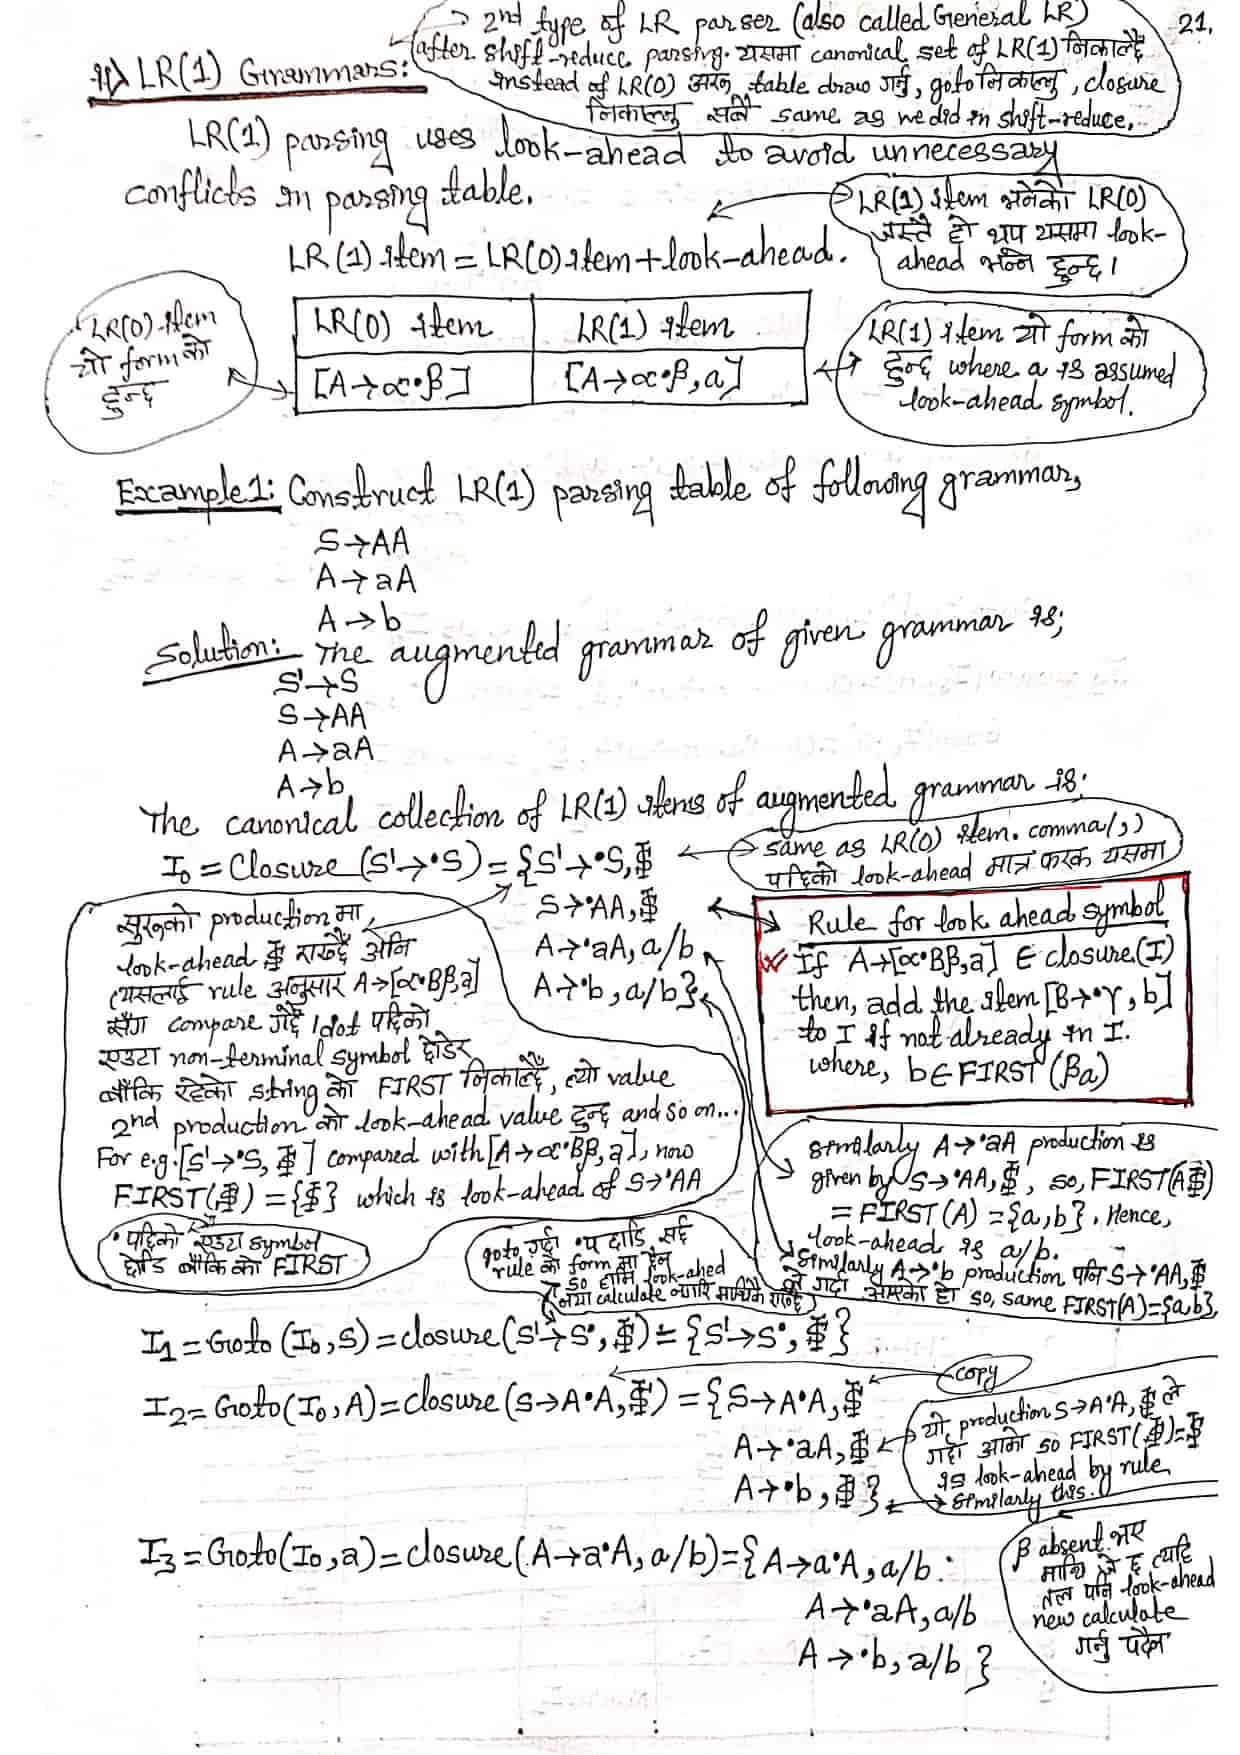 21.
→ 2nd type of LR parser (also called General LR)
after shift-reduce parsing. यसमा canonical set of LR(1) निकाल्दै
instead of LR(0) अरु table draw गर्नु, goto निकाल्नु, closure
निकाल्नु सबै same as we did in shift-reduce.
LR(1) Grammars:
LR(1) parsing uses look-ahead to avoid unnecessary
conflicts in parsing table.
LR(1) item भनेको LR(0)
जस्तै हो थप यसमा look-
ahead भन्नि हुन्छ।
LR(1) item = LR(0) item + look-ahead.
LR(0) item
यो form को
हुन्छ
LR(0) item LR(1) item
[A→α•β] [A→α•β, a]
LR(1) item यो form को
हुन्छ where a is assumed
look-ahead symbol.
Example 1: Construct LR(1) parsing table of following grammar,
S→AA
A→aA
A→b
Solution: The augmented grammar of given grammar is;
S'→S
S→AA
A→aA
A→b
The canonical collection of LR(1) items of augmented grammar is:
same as LR(0) item. comma(,)
पछिको look-ahead मात्र फरक यसमा
I₀ = Closure (S'→•S) = {S'→•S, $
S→•AA, $
A→•aA, a/b
A→•b, a/b}
सुरुको production मा
look-ahead $ राख्दै अनि
त्यसलाई rule अनुसार A→[α•Bβ, a]
सँग compare गर्दै dot पछिको
एउटा non-terminal symbol छोडेर
बाँकि रहेको string को FIRST निकाल्दै, त्यो value
2nd production को look-ahead value हुन्छ and so on...
For e.g. [S'→•S, $] compared with [A→α•Bβ, a], now
FIRST($) = {$} which is look-ahead of S→•AA
• पछिको एउटा symbol
छोडि बाँकि को FIRST
Rule for look ahead symbol
If A→[α•Bβ, a] ∈ closure(I)
then, add the item [B→•γ, b]
to I if not already in I.
where, b∈FIRST(βa)
similarly A→•aA production is
given by S→•AA, $, so, FIRST(A$)
= FIRST(A) = {a, b}. Hence,
look-ahead is a/b.
similarly A→•b production पनि S→•AA, $
ले गर्दा आएको हो so, same FIRST(A)={a,b}.
goto गर्दा • प छाडि सर्दै
rule को form मा हुन्न
so हामि look-ahed
नया calculate नगरि माथिकै राख्दि
I₁ = Goto (I₀, S) = closure (S'→S•, $) = {S'→S•, $}
copy
I₂ = Goto(I₀, A) = closure (S→A•A, $) = {S→A•A, $
A→•aA, $
A→•b, $}
यो production S→A•A, $ ले
गर्दा आको so FIRST($)=$
is look-ahead by rule
similarly this.
I₃ = Goto(I₀, a) = closure(A→a•A, a/b) = {A→a•A, a/b
A→•aA, a/b
A→•b, a/b}
β absent भए
माथि जे छ त्यहि
तल पनि look-ahead
new calculate
गर्नु पर्दैन